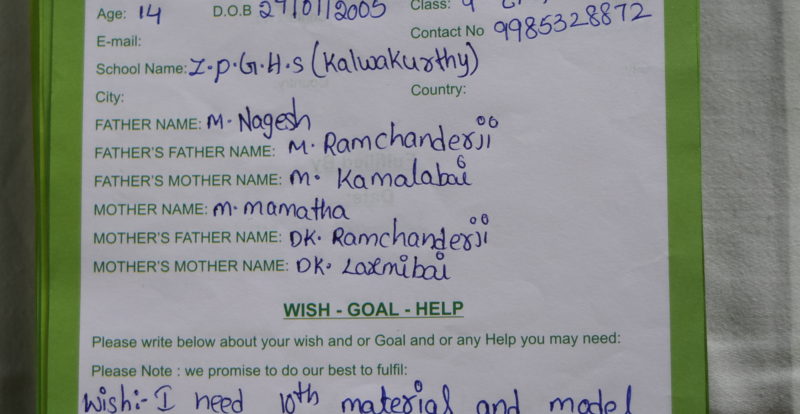 Age: 14 D.O.B 27/01/2005 Class: 9
E-mail: Contact No 9985328872
School Name: Z.P.G.H.S (Kalwakurthy)
City: Country:
FATHER NAME: M. Nagesh
FATHER'S FATHER NAME: M. Ramchanderji
FATHER'S MOTHER NAME: M. Kamalabai
MOTHER NAME: M. Mamatha
MOTHER'S FATHER NAME: DK. Ramchanderji
MOTHER'S MOTHER NAME: DK. Laxmibai
WISH - GOAL - HELP
Please write below about your wish and or Goal and or any Help you may need:
Please Note : we promise to do our best to fulfil:
Wish:- I need 10th material and model